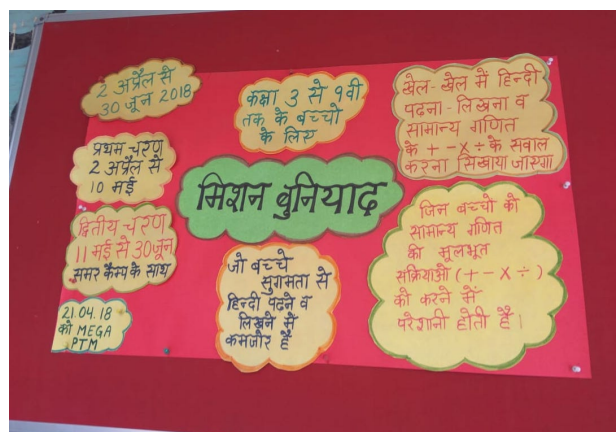 2 अप्रैल से
30 जून 2018
प्रथम चरण
2 अप्रैल से
10 मई
द्वितीय चरण
11 मई से 30 जून
समर कैम्प के साथ
21.04.18
को MEGA
PTM
कक्षा 3 से 9वी
तक के बच्चो
के लिए
मिशन बुनियाद
जो बच्चे
सुगमता से
हिन्दी पढने व
लिखने में
कमजोर है
खेल-खेल में हिन्दी
पढना-लिखना व
सामान्य गणित
के + - × ÷ के सवाल
करना सिखाया जाएगा
जिन बच्चो को
सामान्य गणित
की मूलभूत
सक्रियाओं (+ - × ÷)
को करने में
परेशानी होती है।